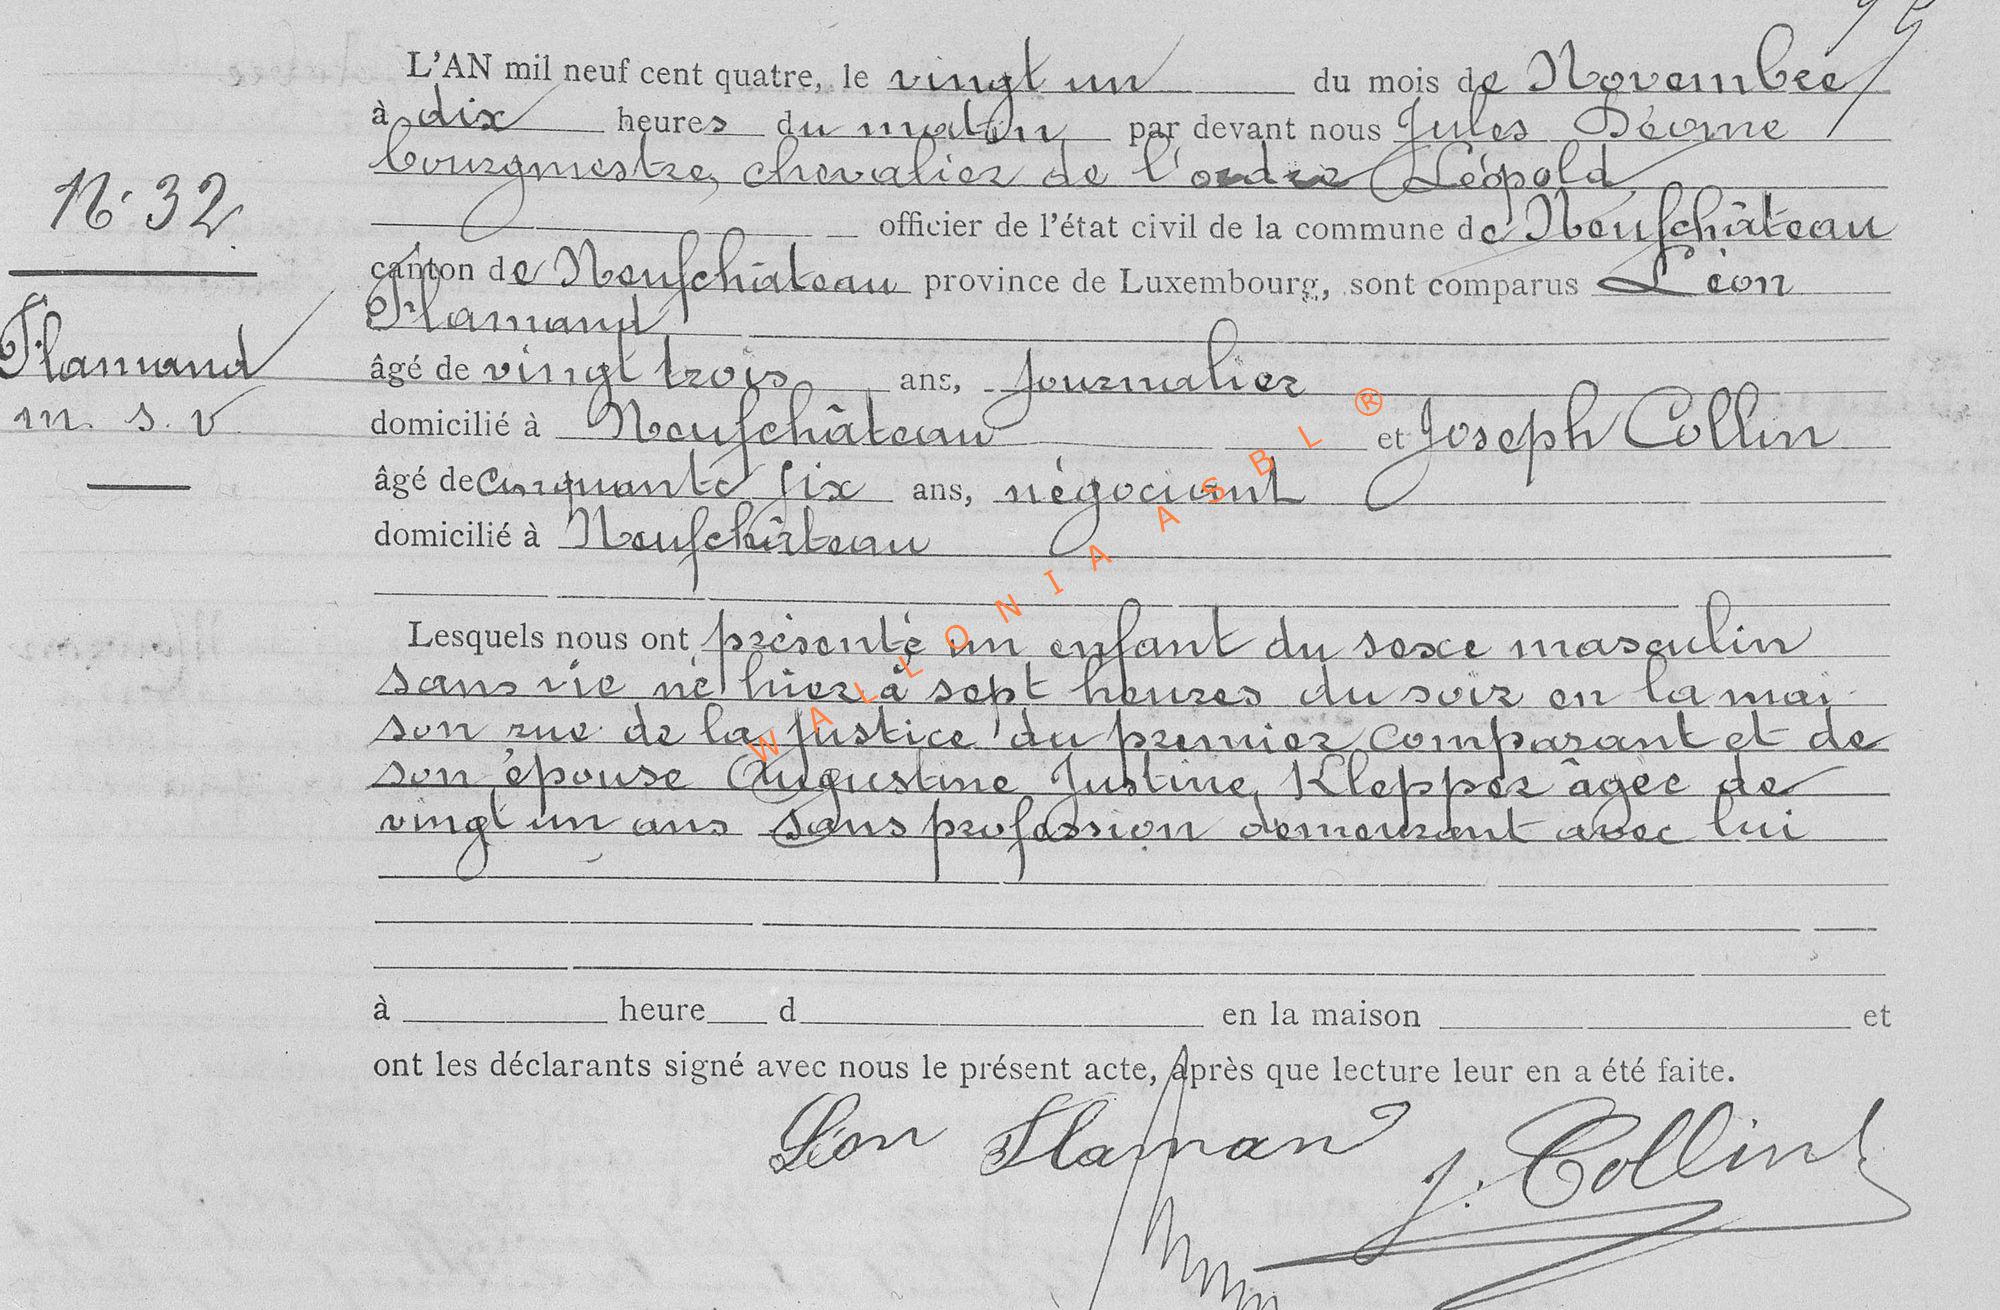 L'AN mil neuf cent quatre, le vingt un du mois de Novembre
à dix heures du matin par devant nous Jules
bourgmestre, chevalier de l'ordre Léopold
officier de l'état civil de la commune de Neufchâteau
N. 32
canton de Neufchâteau province de Luxembourg, sont comparus Léon
Flamand
Flamand
m. s. v
âgé de vingt trois ans, journalier
domicilié à Neufchâteau et Joseph Collin
âgé de cinquante six ans, négociant
domicilié à Neufchâteau
Lesquels nous ont présenté un enfant du sexe masculin
sans vie né hier à sept heures du soir en la mai
son rue de la Justice du premier comparant et de
son épouse Augustine Justine Klepper âgée de
vingt un ans sans profession demeurant avec lui
à heure d en la maison et
ont les déclarants signé avec nous le présent acte, après que lecture leur en a été faite.
Léon Flamand
J. Collin
WALLONIA ASBL ®